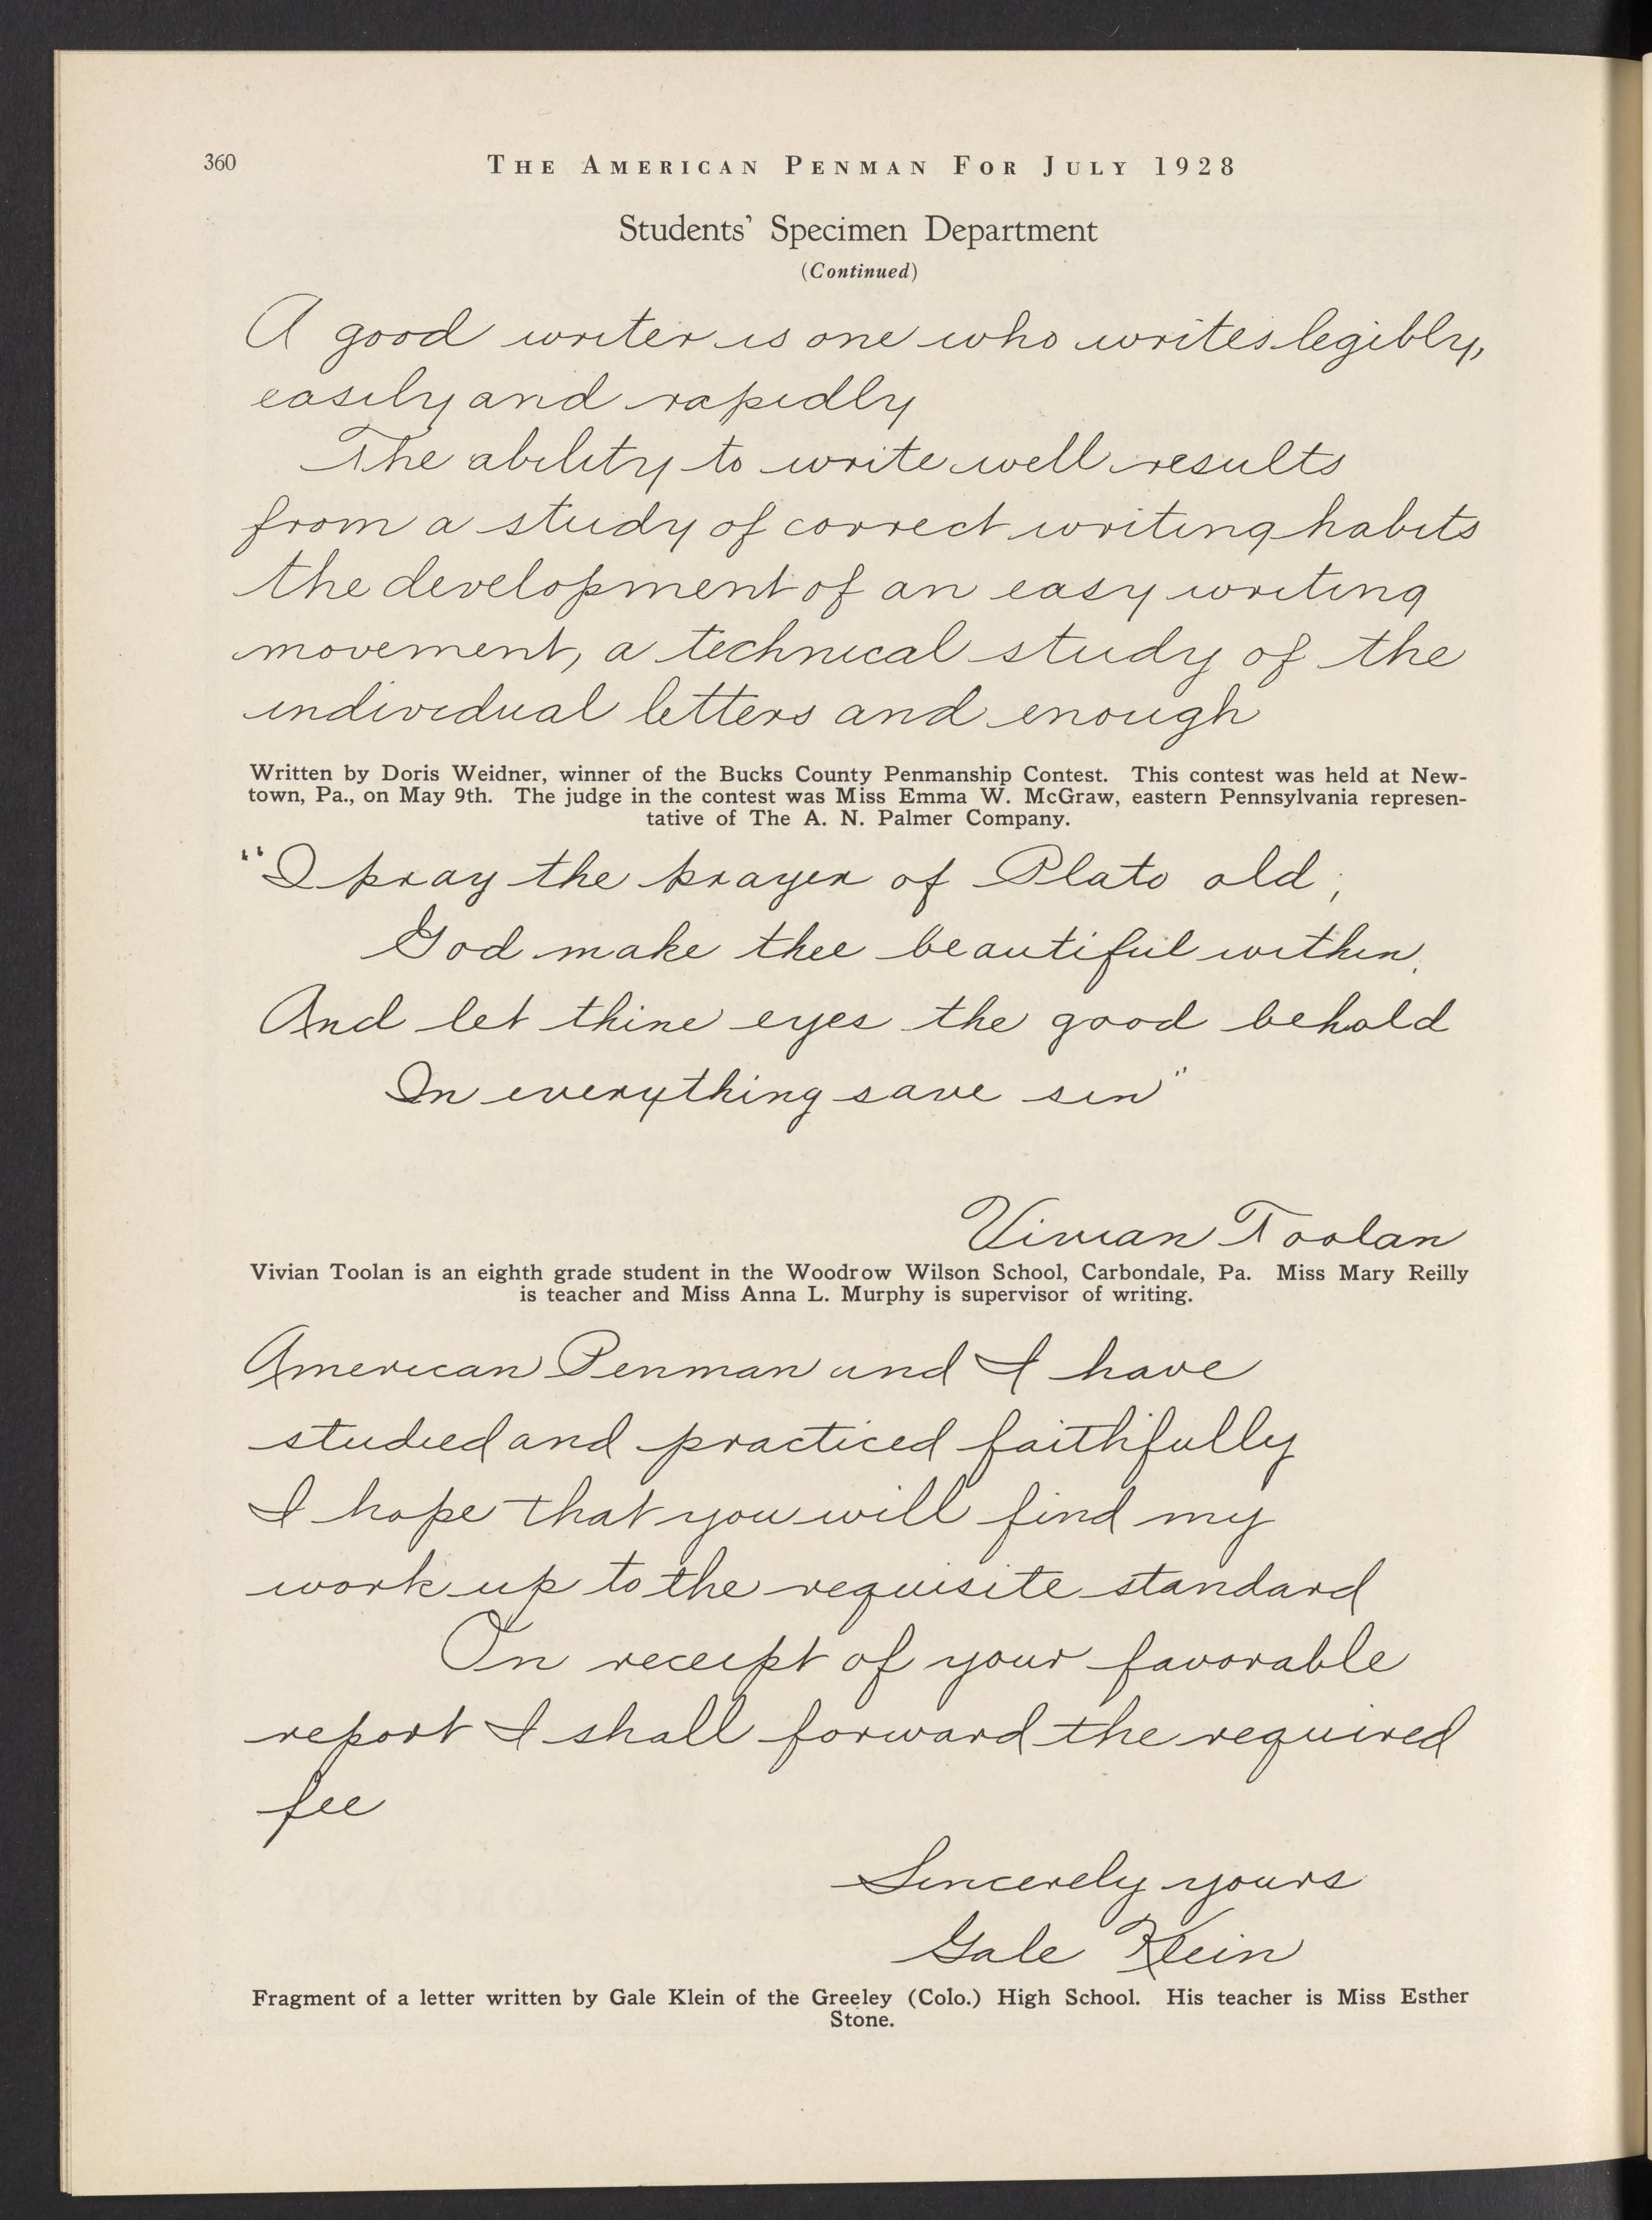 360
THE AMERICAN PENMAN FOR JULY 1928
Students' Specimen Department
(Continued)
A good writer is one who writes legibly,
easily and rapidly
The ability to write well results
from a study of correct writing habits
the development of an easy writing
movement, a technical study of the
individual letters and enough
Written by Doris Weidner, winner of the Bucks County Penmanship Contest. This contest was held at New-
town, Pa., on May 9th. The judge in the contest was Miss Emma W. McGraw, eastern Pennsylvania represen-
tative of The A. N. Palmer Company.
"I pray the prayer of Plato old;
God make thee beautiful within,
And let thine eyes the good behold
In everything save sin"
Vivian Toolan
Vivian Toolan is an eighth grade student in the Woodrow Wilson School, Carbondale, Pa. Miss Mary Reilly
is teacher and Miss Anna L. Murphy is supervisor of writing.
American Penman and I have
studied and practiced faithfully
I hope that you will find my
work up to the requisite standard
On receipt of your favorable
report I shall forward the required
fee
Sincerely yours
Gale Klein
Fragment of a letter written by Gale Klein of the Greeley (Colo.) High School. His teacher is Miss Esther
Stone.